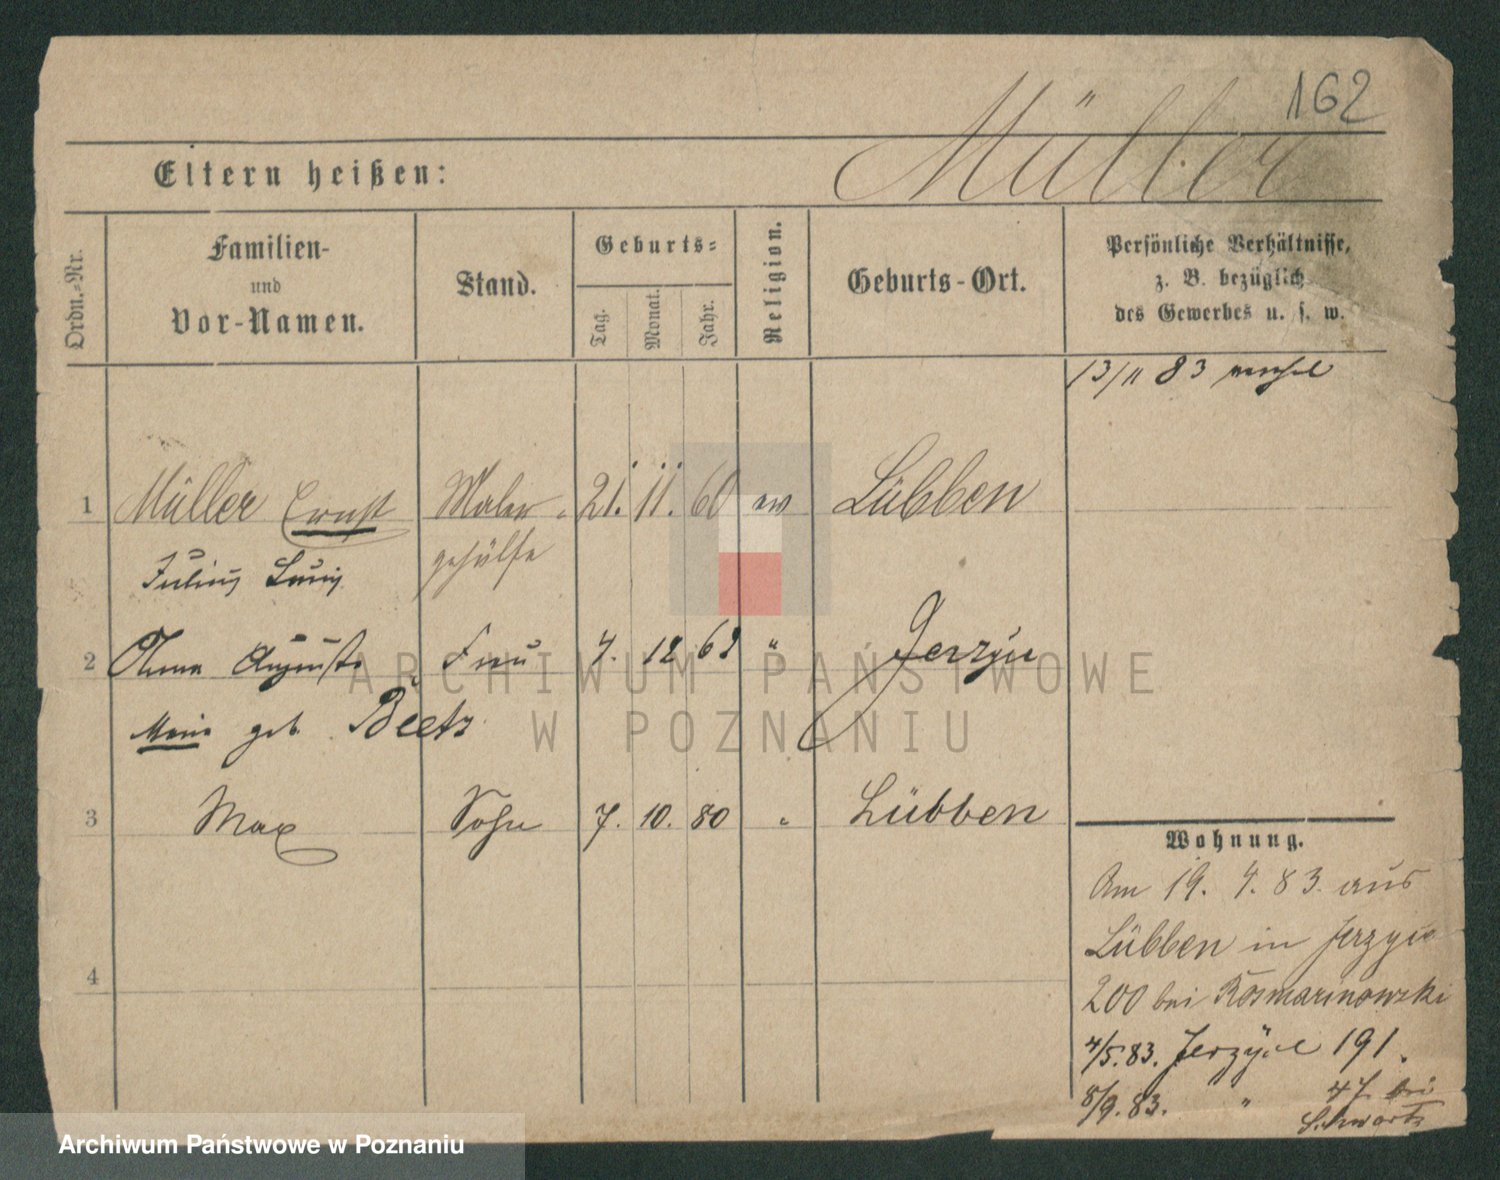 162
Müller
Eltern heißen:
Ordn.-Nr.
Familien-
und
Vor-Namen.
Stand.
Geburts-
Tag.
Monat.
Jahr.
Religion.
Geburts-Ort.
Persönliche Verhältnisse,
z. B. bezüglich
des Gewerbes u. s. w.
13/11 83
1 Müller Ernst Maler- 21. 11. 60 ev Lübben
Julius Louis gehülfe
2 Anna Auguste Frau 7. 12 62 " Jerzyce
Marie geb. Beetz
3 Max Sohn 7. 10. 80 " Lübben
4
Wohnung.
Am 19. 4. 83. aus
Lübben in Jerzyce
200 bei Rosmarinowski
4/5. 83. Jerzyce 191.
8/9. 83. " 47 bei
Schwartz
ARCHIWUM PAŃSTWOWE
W POZNANIU
Archiwum Państwowe w Poznaniu